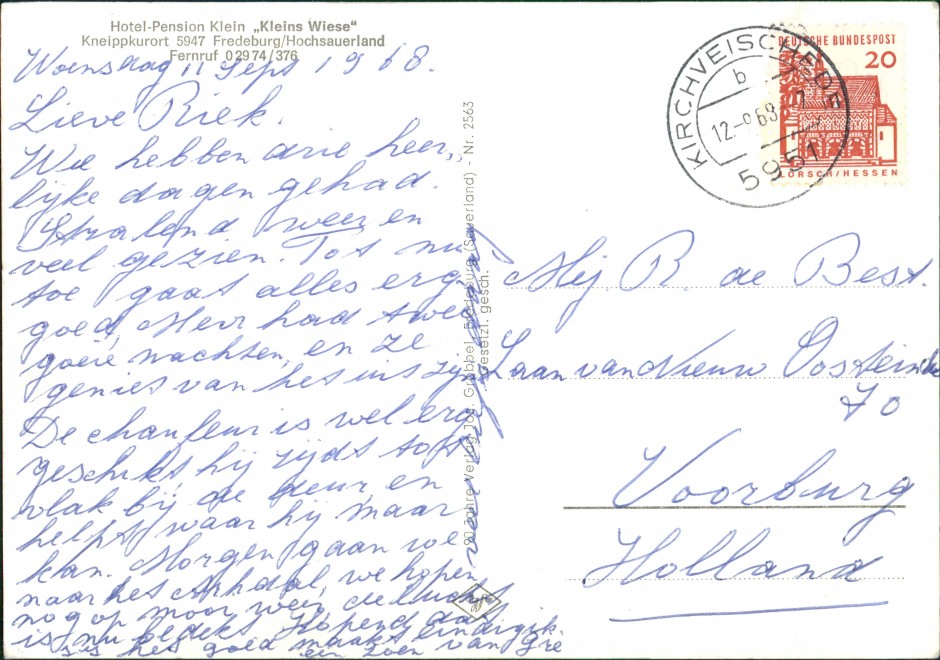 Hotel-Pension Klein „Kleins Wiese“
Kneippkurort 5947 Fredeburg/Hochsauerland
Fernruf 0 29 74 / 376
Woensdag 11 Sept 1968.
Lieve Riek.
We hebben drie heer„
lijke dagen gehad.
Stralend weer en
veel gezien. Tot nu
toe gaat alles erg
goed, Mevr had twee
goeie nachten, en ze
geniet van het uit zijn
De chaufeur is wel erg
geschikt, hij rijdt tot
vlak bij de deur, en
helpt waar hij maar
kan. Morgen gaan we
naar het, we hopen
nog op mooi weer, de lucht
is nu. Hopend dat
het goed maakt eindig ik
een zoen van Gré
90 Jahre Verlag Jos. Grobbel, Fredeburg (Sauerland) - Nr. 2563
Gesetzl. gesch.
KIRCHVEISCHEDE
b
12.-9.68.-7
5951
DEUTSCHE BUNDESPOST
20
LORSCH/HESSEN
Mej. R. de Best.
Laan van Nieuw Oosteinde
70
Voorburg
Holland